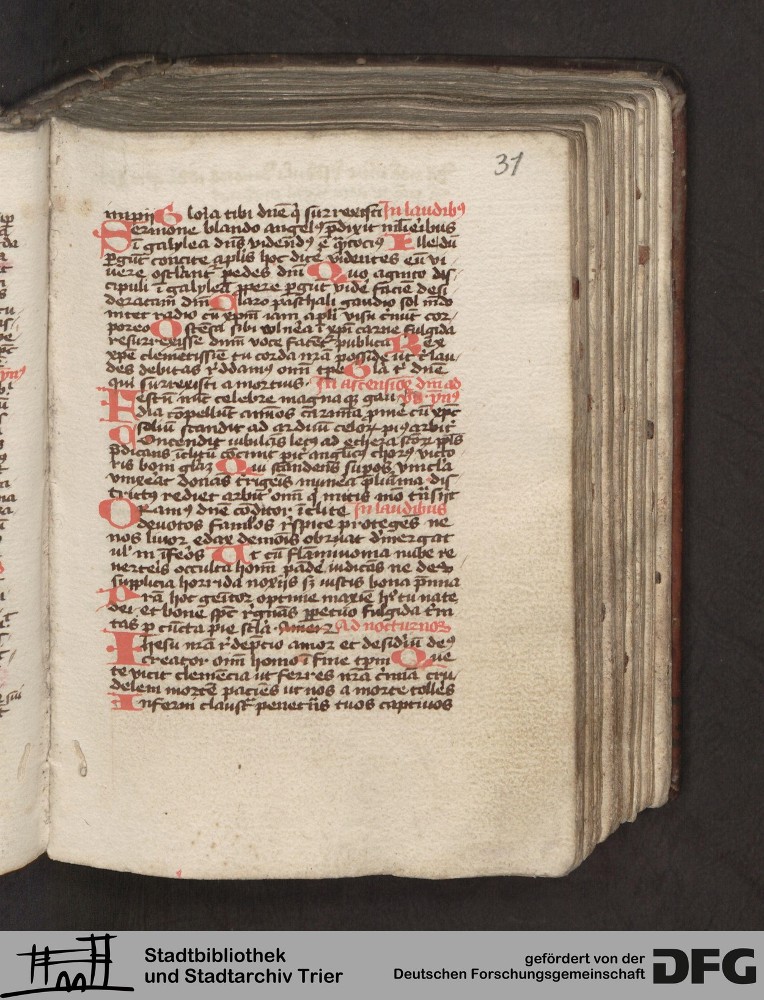 31
impij Gloria tibi dne q surrexisti In laudibus
Sermone blando angelus pdixit mulieribus
i galylea dns videndus e qtocius Ille du
pergut concite aplis hoc dice videntes eu vi
vere osclant pedes dni Quo agnito dis
cipuli i galylea ppere pergut vide facie desi
deratam dni Claro paschali gaudio sol mdo
nitet radio cu xpm iam apli visu cernut cor
poreo Ostesa sibi vulnea i xpi carne fulgida
resurrexisse dnm voce fatent publica Rex
xpe clemetissie tu corda nra posside ut t lau
des debitas reddamus omi tpe Gla t dne
qui surrexisti a mortuis In ascensioe dni ad
Festu nuc celebre magnaq gau vs ymnus
dia copellut aimos carmina pmie cu xpc
soliu scandit ad arduu celor pius arbit
Conscendit iubilas letus ad ethera scor ppls
pdicans iclitu cocinit pit anglicus chorus victo
ris boni gla Qui scandens supos vincla
vinxerat donas trigeis munea plima dis
trictus rediet arbit omi q mitis mo tnsijt
Oramus dne coditor iclite In laudibus
devotos famlos respice proteges ne
nos livor edax demois obruat dmergat
ul in ifeos Ut cu flammivoma nube re
verteis occulta homi pade iudicas ne des
supplicia horrida noxijs sz iustis bona pmia
Pra hoc geitor optime maxie hs tu nate
dei et bone spc regnas ppetuo fulgida tri
tas p cucta pie scla Amen Ad nocturnos
Ihesu nra redeptio amor et desidiu deus
creator omi homo i fine tpm Que
te vicit clemecia ut ferres nra crimia cru
delem morte paciens ut nos a morte tolles
Inferni claustr penetris tuos captivos
Stadtbibliothek
und Stadtarchiv Trier
gefördert von der
Deutschen Forschungsgemeinschaft
DFG